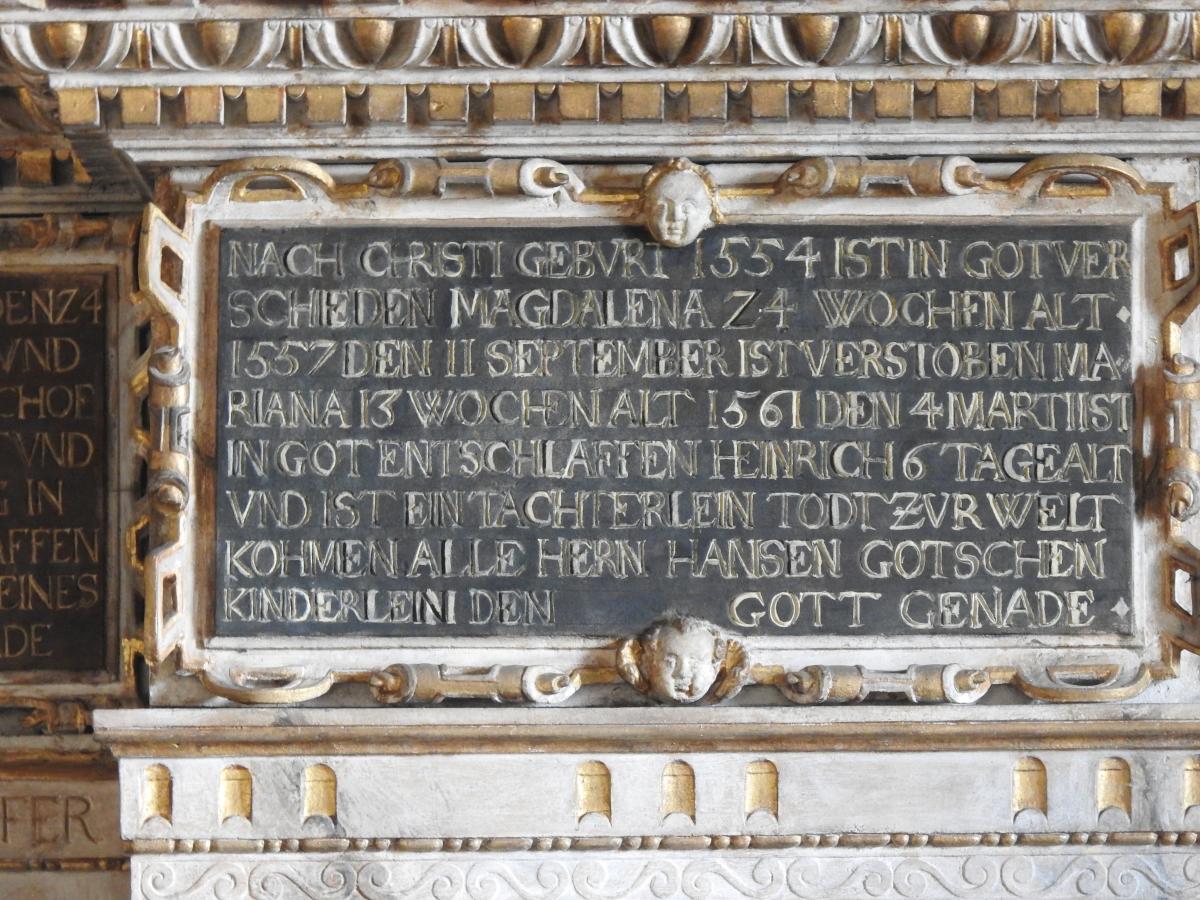 NACH CHRISTI GEBVRT 1554 IST IN GOT VER
SCHIEDEN MAGDALENA Z4 WOCHEN ALT
1557 DEN 11 SEPTEMBER IST VERSTOBEN MA-
RIANA 13 WOCHEN ALT 1561 DEN 4 MARTII IST
IN GOT ENTSCHLAFFEN HEINRICH 6 TAGE ALT
VND IST EIN TACHTERLEIN TODT ZVR WELT
KOHMEN ALLE HERN HANSEN GOTSCHEN
KINDERLEIN DEN GOTT GENADE
DENZ4
VND
CHOE
VND
IN
AFFEN
EINES
ADE
FER